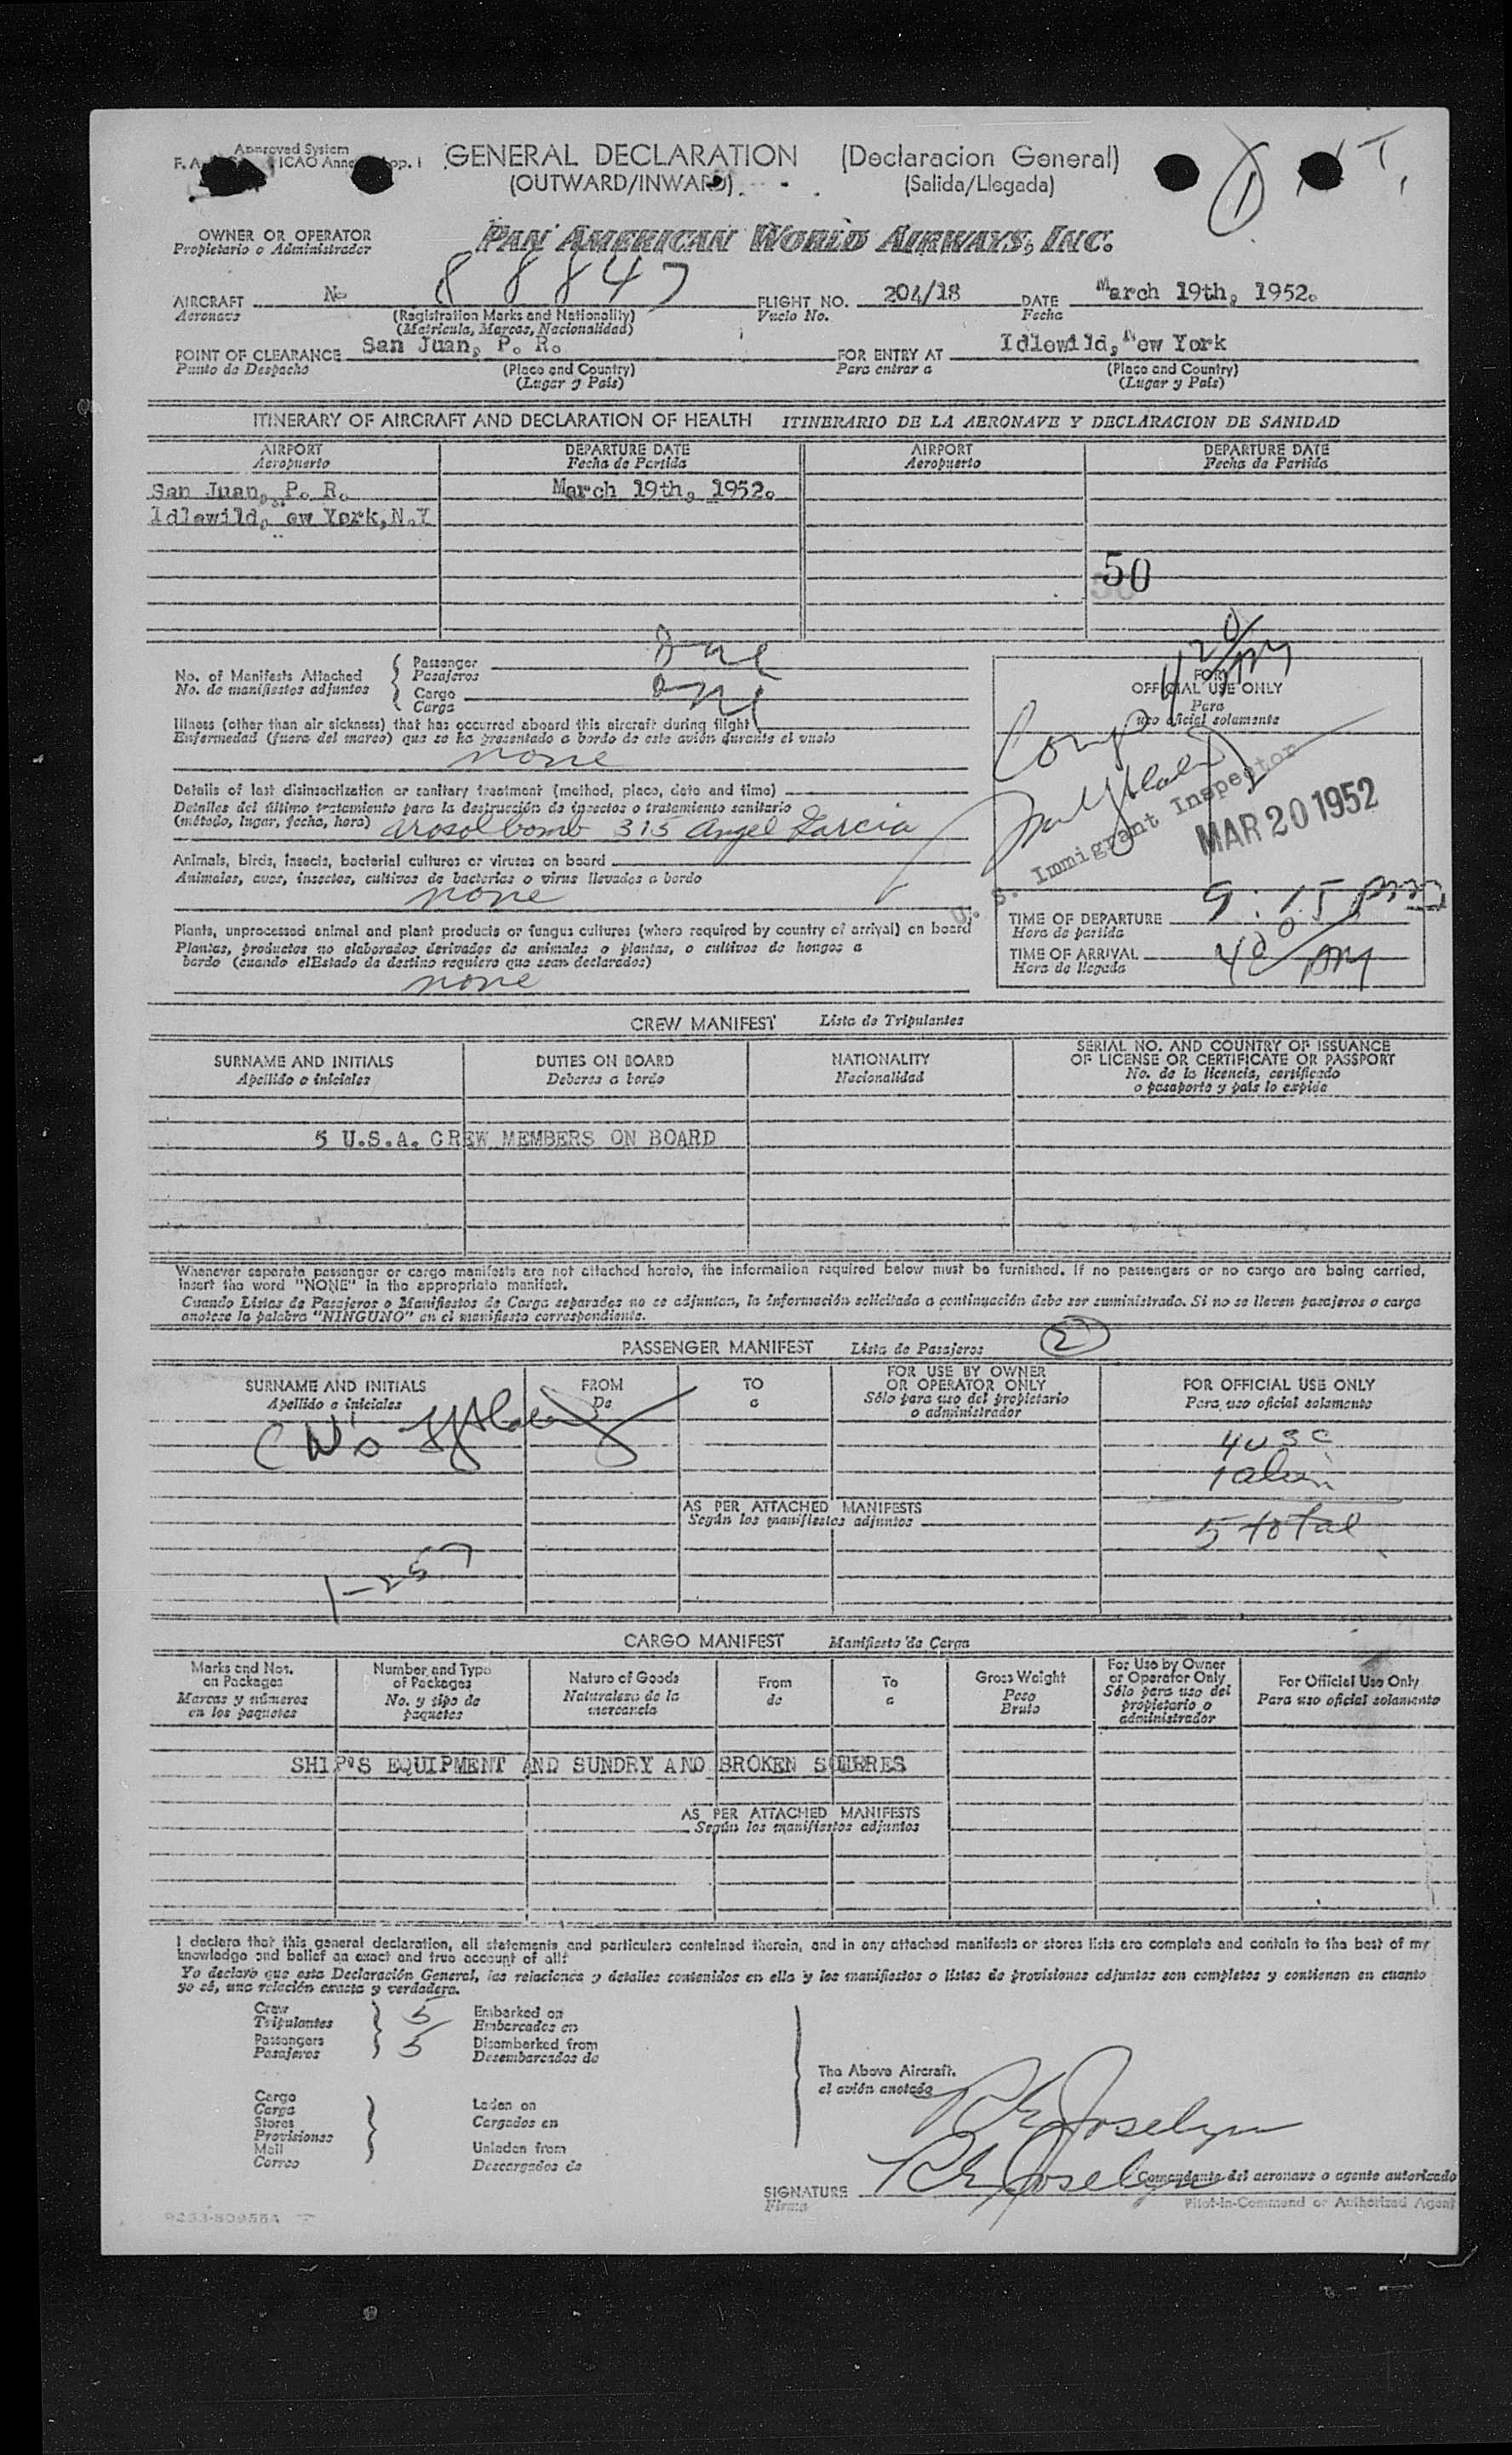 Approved System
GENERAL DECLARATION (Declaracion General)
(OUTWARD/INWARD) (Salida/Llegada)
OWNER OR OPERATOR
Propietario o Administrador
PAN AMERICAN WORLD AIRWAYS, INC.
AIRCRAFT N- 88847 FLIGHT NO. 204/18 DATE March 19th, 1952.
Aeronave (Registration Marks and Nationality) Vuelo No. Fecha
(Matricula, Marcas, Nacionalidad)
POINT OF CLEARANCE San Juan, P. R. FOR ENTRY AT Idlewild, New York
Punto de Despacho (Place and Country) Para entrar a (Place and Country)
(Lugar y País) (Lugar y País)
ITINERARY OF AIRCRAFT AND DECLARATION OF HEALTH ITINERARIO DE LA AERONAVE Y DECLARACION DE SANIDAD
AIRPORT DEPARTURE DATE AIRPORT DEPARTURE DATE
Aeropuerto Fecha de Partida Aeropuerto Fecha de Partida
San Juan, P. R. March 19th, 1952.
Idlewild, ew York, N.Y
50
No. of Manifests Attached
No. de manifiestos adjuntos
Passenger one
Pasajeros
Cargo one
Carga
Illness (other than air sickness) that has occurred aboard this aircraft during flight
Enfermedad (fuera del mareo) que se ha presentado a bordo de este avión durante el vuelo
none
Details of last disinsectization or sanitary treatment (method, place, date and time)
Detalles del último tratamiento para la destrucción de insectos o tratamiento sanitario
(método, lugar, fecha, hora) arosol bomb 315 Angel Garcia
Animals, birds, insects, bacterial cultures or viruses on board
Animales, aves, insectos, cultivos de bacterias o virus llevados a bordo
none
Plants, unprocessed animal and plant products or fungus cultures (where required by country of arrival) on board
Plantas, productos no elaborados derivados de animales o plantas, o cultivos de hongos a
bordo (cuando elEstado de destino requiera que sean declarados)
none
FOR
OFFICIAL USE ONLY
Para
uso oficial solamente
U. S. Immigrant Inspector
MAR 20 1952
TIME OF DEPARTURE 9:15 pm
Hora de partida
TIME OF ARRIVAL 400 PM
Hora de llegada
CREW MANIFEST Lista de Tripulantes
SURNAME AND INITIALS DUTIES ON BOARD NATIONALITY SERIAL NO. AND COUNTRY OF ISSUANCE
OF LICENSE OR CERTIFICATE OR PASSPORT
Apellido e iniciales Deberes a bordo Nacionalidad No. de la licencia, certificado
o pasaporte y país lo expide
5 U.S.A. CREW MEMBERS ON BOARD
Whenever separate passenger or cargo manifests are not attached hereto, the information required below must be furnished. If no passengers or no cargo are being carried,
insert the word "NONE" in the appropriate manifest.
Cuando Listas de Pasajeros o Manifiestos de Carga separados no se adjuntan, la información solicitada a continuación debe ser suministrada. Si no se lleven pasajeros o carga
anotese la palabra "NINGUNO" en el manifiesto correspondiente.
PASSENGER MANIFEST Lista de Pasajeros 2
SURNAME AND INITIALS FROM TO FOR USE BY OWNER
OR OPERATOR ONLY FOR OFFICIAL USE ONLY
Apellido e iniciales De a Sólo para uso del propietario
o administrador Para uso oficial solamente
4 USC
1 alien
AS PER ATTACHED MANIFESTS
Según los manifiestos adjuntos
5 total
1-257
CARGO MANIFEST Manifiesto de Carga
Marks and Nos.
on Packages
Marcas y números
en los paquetes
Number and Type
of Packages
No. y tipo de
paquetes
Nature of Goods
Naturaleza de la
mercancía
From
de
To
a
Gross Weight
Peso
Bruto
For Use by Owner
or Operator Only
Sólo para uso del
propietario o
administrador
For Official Use Only
Para uso oficial solamente
SHIP'S EQUIPMENT AND SUNDRY AND BROKEN
AS PER ATTACHED MANIFESTS
Según los manifiestos adjuntos
I declare that this general declaration, all statements and particulars contained therein, and in any attached manifests or stores lists are complete and contain to the best of my
knowledge and belief an exact and true account of all:
Yo declaro que esta Declaración General, las relaciones y detalles contenidos en ella y los manifiestos o listas de provisiones adjuntos son completos y contienen en cuanto
yo sé, una relación exacta y verdadera.
Crew
Tripulantes 5
Passengers
Pasajeros 5
Embarked on
Embarcados en
Disembarked from
Desembarcados de
Cargo
Carga
Stores
Provisiones
Mail
Correo
Laden on
Cargados en
Unladen from
Descargados de
The Above Aircraft.
el avión anotado
R E Joselyn
SIGNATURE R E Joselyn
Firma
Comandante del aeronave o agente autorizado
Pilot-in-Command or Authorized Agent